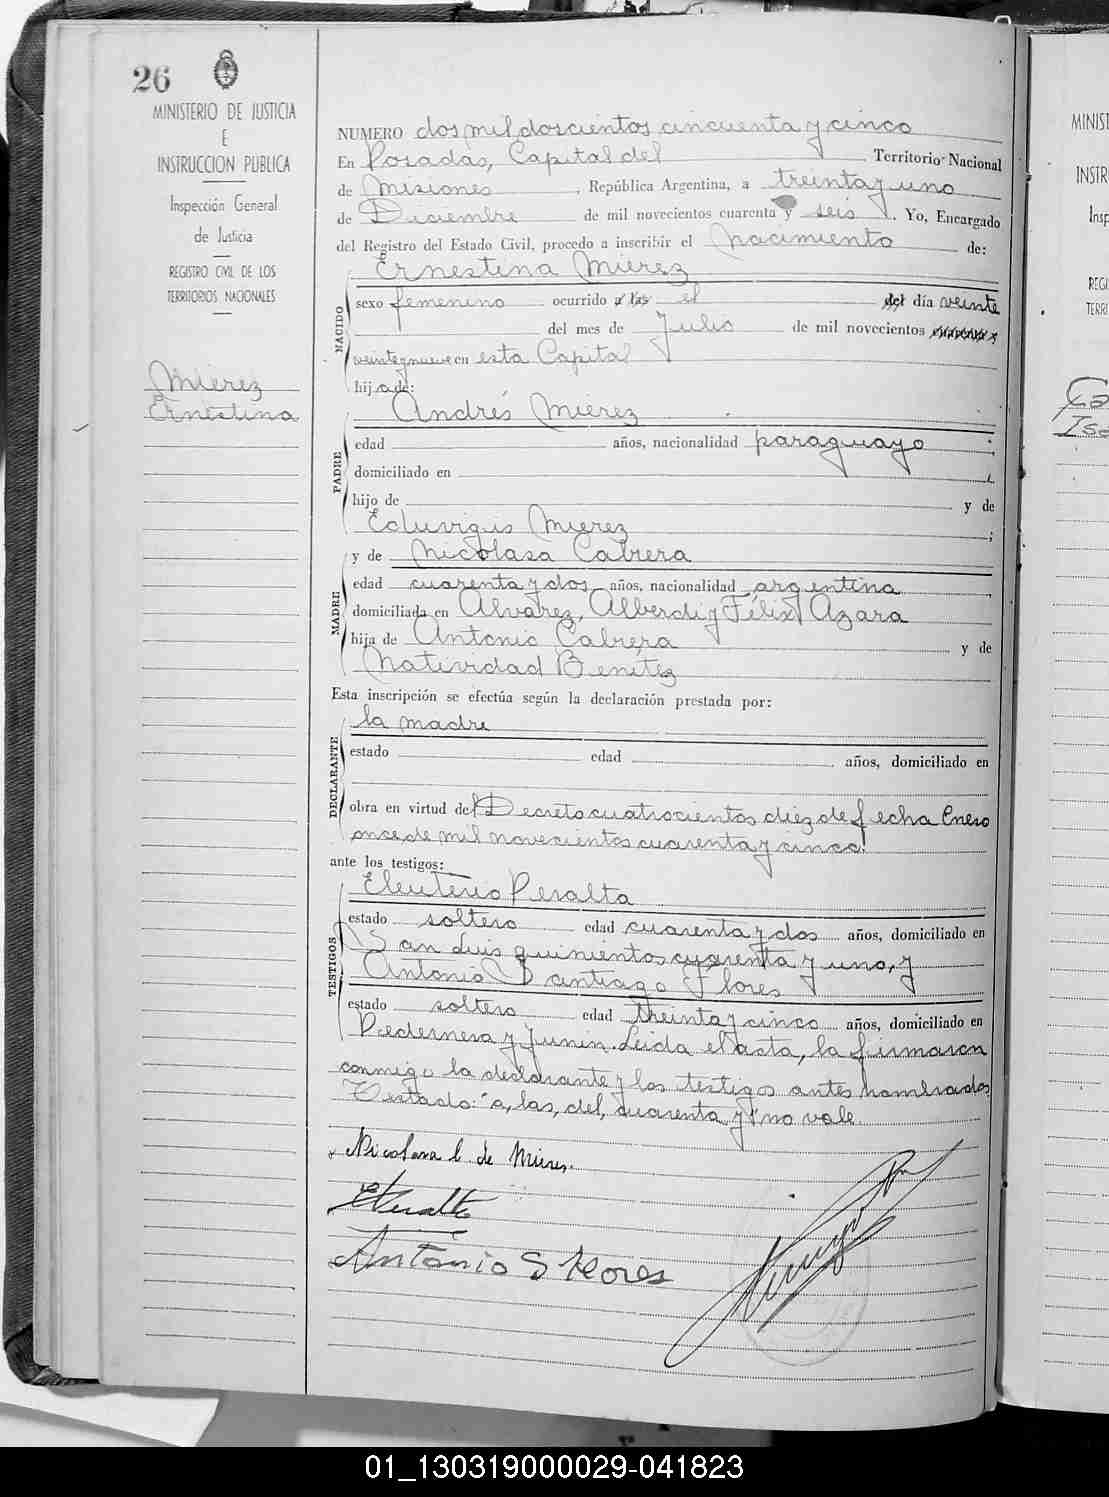 26
MINISTERIO DE JUSTICIA
E
INSTRUCCION PUBLICA
Inspección General
de Justicia
REGISTRO CIVIL DE LOS
TERRITORIOS NACIONALES
Mierez
Ernestina
NUMERO dos mil doscientos cincuenta y cinco
En Posadas, Capital del Territorio Nacional
de Misiones, República Argentina, a treinta y uno
de Diciembre de mil novecientos cuarenta y seis. Yo, Encargado
del Registro del Estado Civil, procedo a inscribir el nacimiento de:
NACIDO
Ernestina Mierez
sexo femenino ocurrido a las el del día veinte
del mes de Julio de mil novecientos cuarenta y
veintey nueve en esta Capital
hija de:
PADRE
Andrés Mierez
edad años, nacionalidad paraguayo;
domiciliado en
hijo de y de
Eduvigis Mierez;
MADRE
y de Nicolasa Cabrera
edad cuarenta y dos años, nacionalidad argentina,
domiciliada en Alvarez, Alberdi y Félix Azara
hija de Antonio Cabrera y de
Natividad Benitez
Esta inscripción se efectúa según la declaración prestada por:
DECLARANTE
la madre
estado edad años, domiciliado en
obra en virtud del Decreto cuatrocientos diez de fecha Enero
once de mil novecientos cuarenta y cinco.
ante los testigos:
TESTIGOS
Eleuterio Peralta
estado soltero edad cuarenta y dos años, domiciliado en
San Luis quinientos cuarenta y uno, y
Antonio Santiago Flores
estado soltero edad treinta y cinco años, domiciliado en
Pedernera y Junin. Leida el acta, la firmaron
conmigo la declarante y los testigos antes nombrados.
Testado: "a, las, del, cuarenta y" no vale.
Nicolasa C. de Mieres.
EPeralta
Antonio S Flores
MINIST
INSTR
Insp
REGI
TERRI
01_130319000029-041823